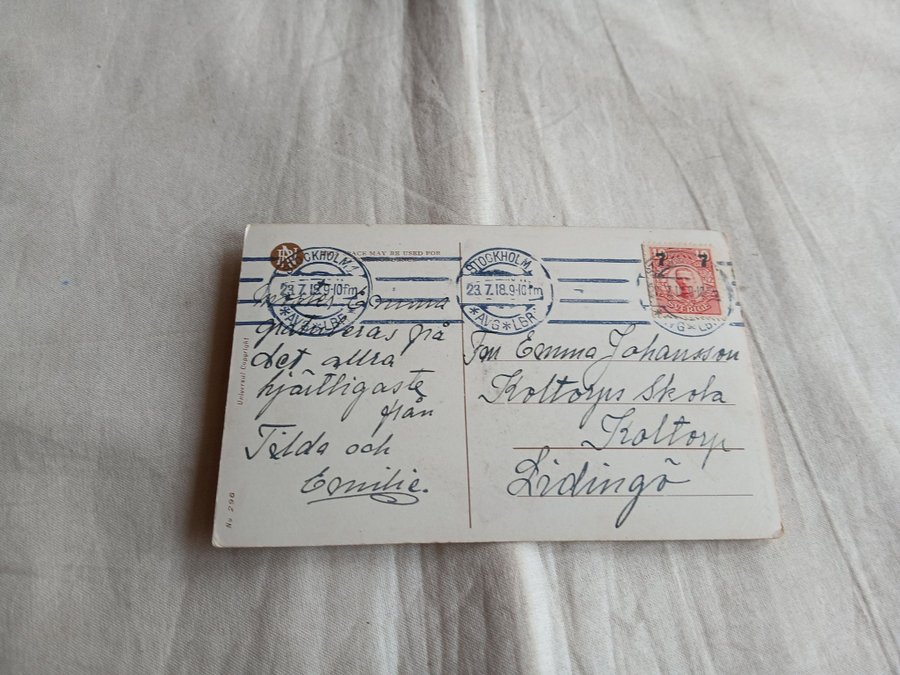 ACE MAY BE USED FOR
STOCKHOLM 1
23.7.18.9-10fm
*AVG*LBR*
STOCKHOLM
23.7.18.9-10fm
*AVG*LBR*
7 7
SVERIGE
Emma
gratuleras på
det allra
hjärtligaste
från
Tilda och
Emilie.
Emma Johansson
Koltorps Skola
Koltorp
Lidingö
Universal Copyright
No 298